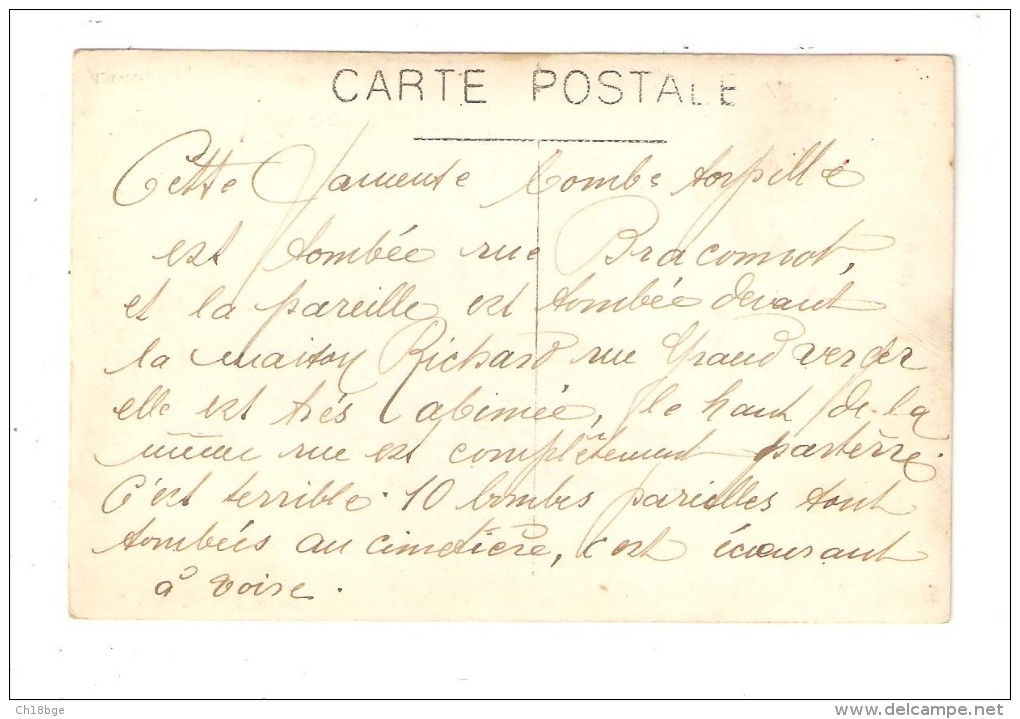 CARTE POSTALE
Cette fameuse bombe torpille
est tombée rue Braconnot,
et la pareille est tombée devant
la maison Richard rue Grand verger
elle est très abimée, le haut de la
même rue est complètement parterre.
C'est terrible. 10 bombes pareilles sont
tombées au cimetière, c'est écœurant
à voire.
Ch18bge
www.delcampe.net